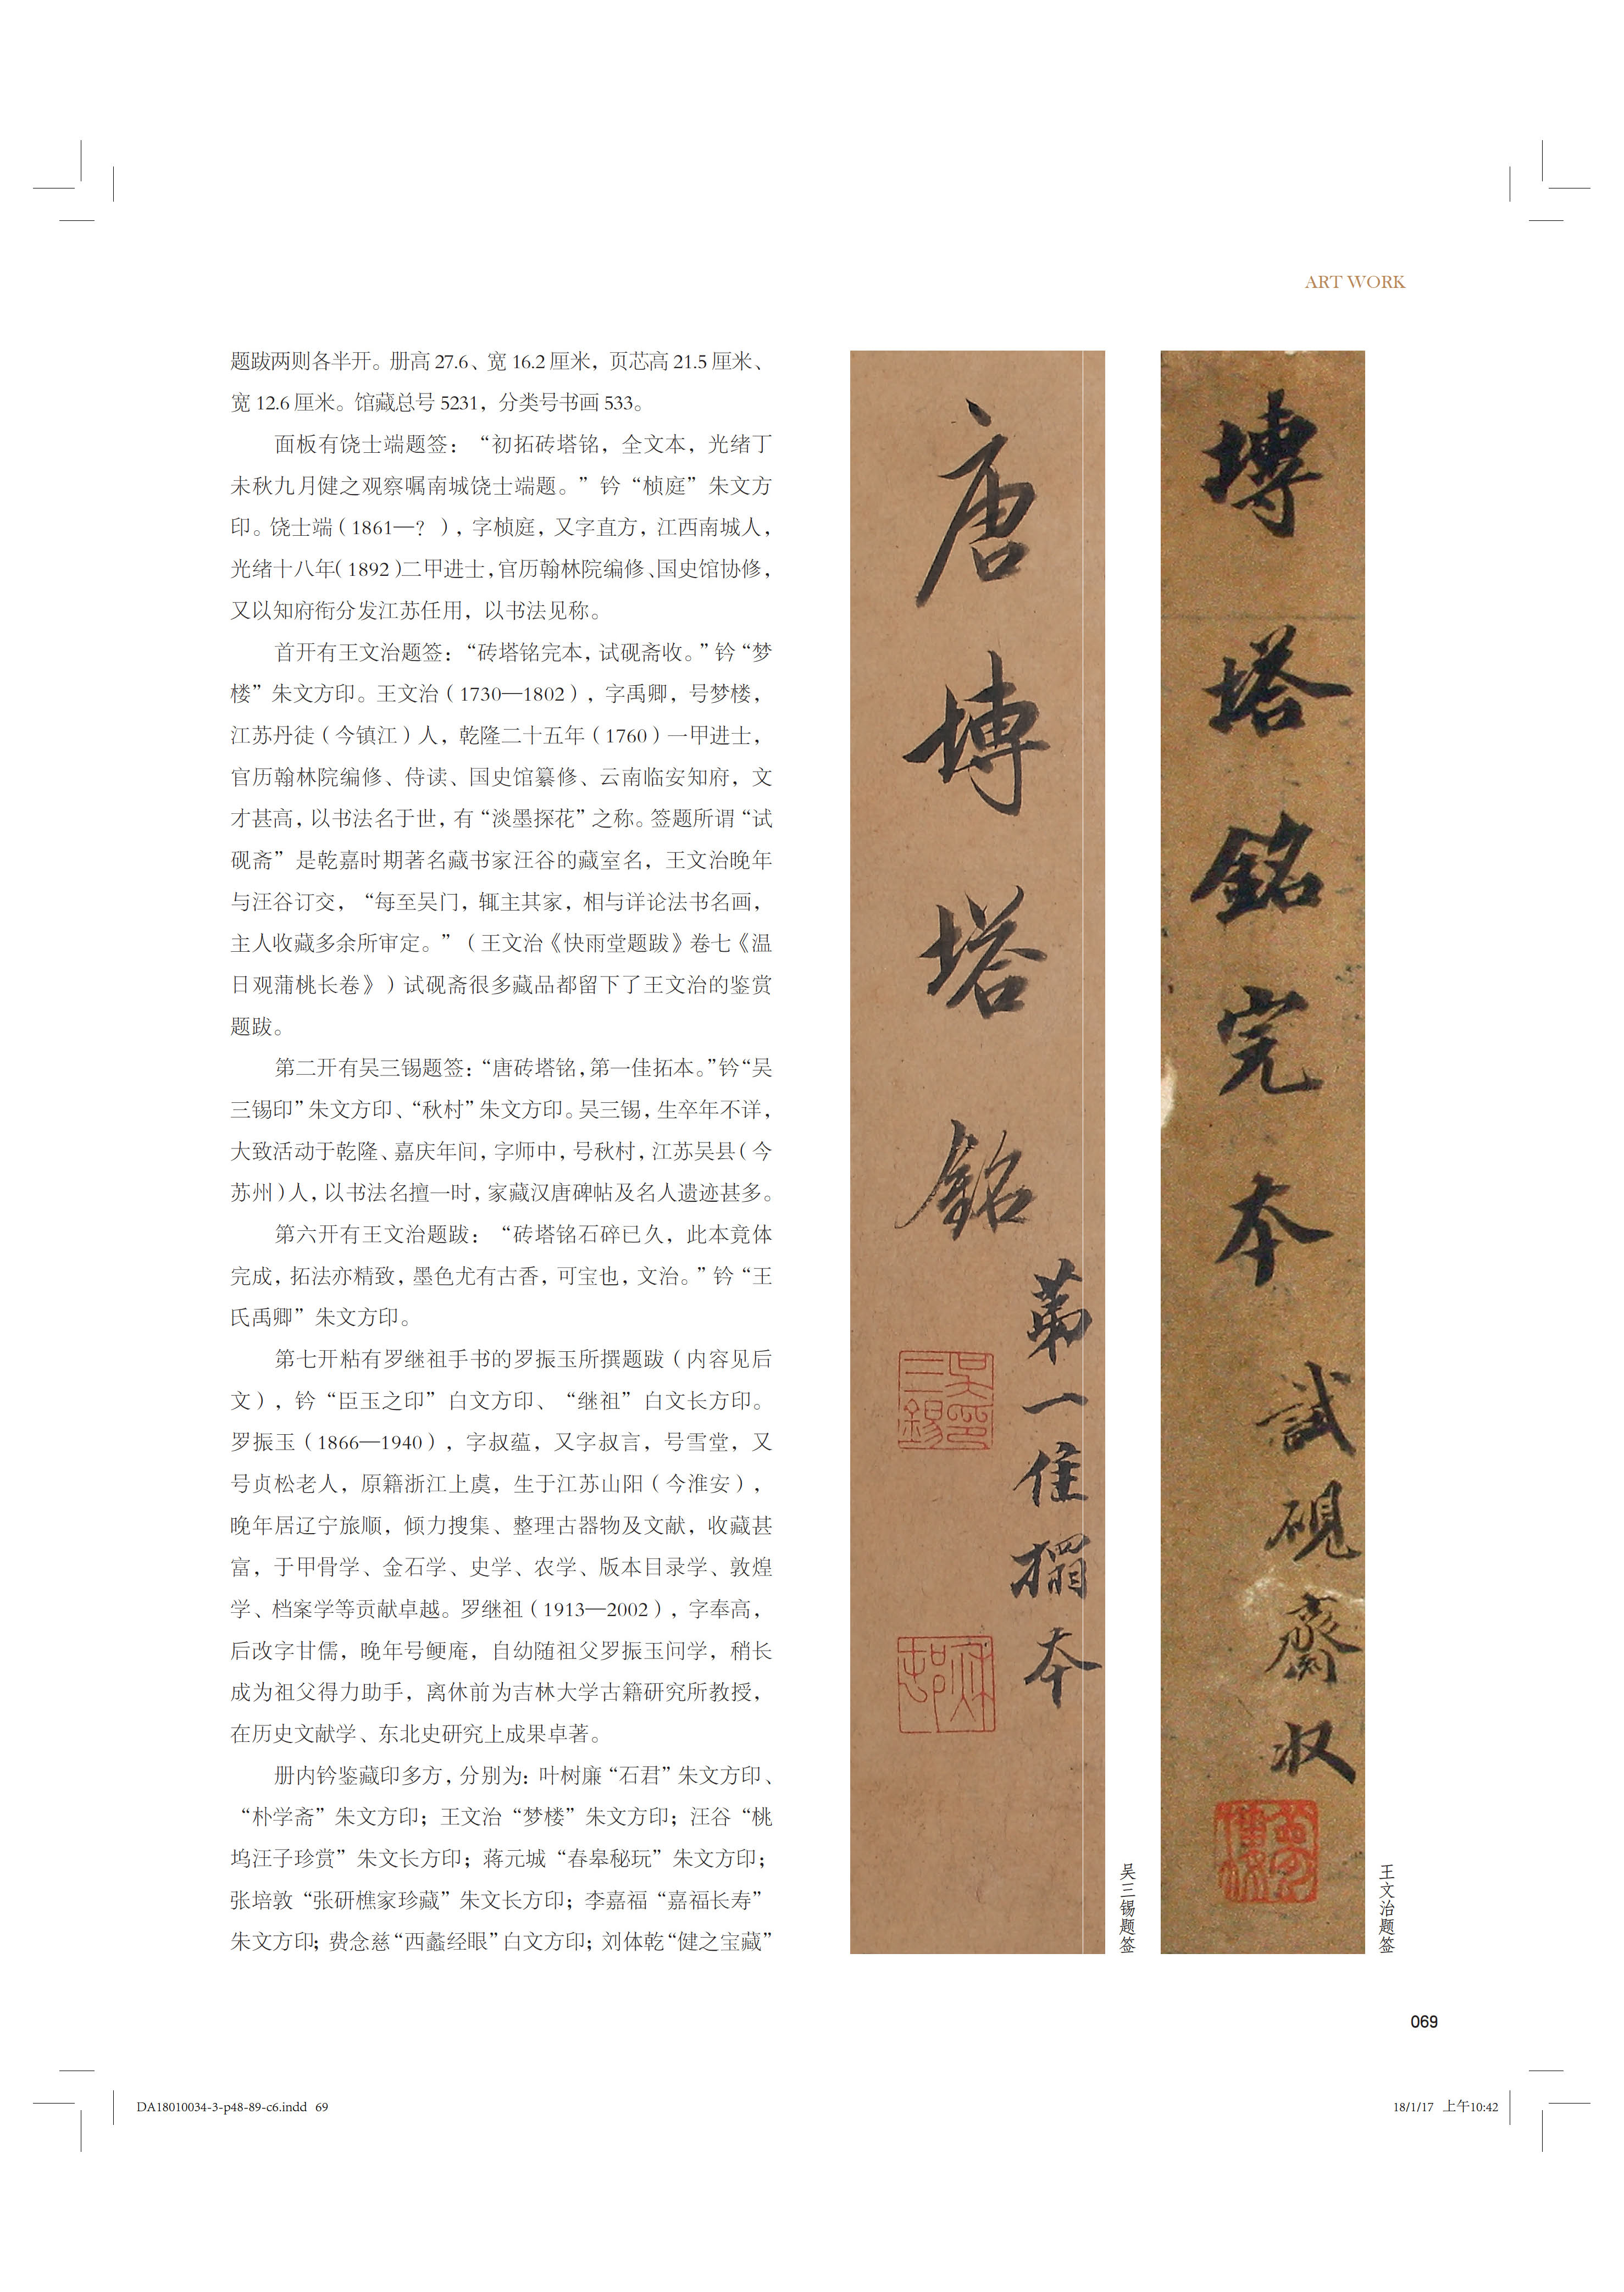 ART WORK
题跋两则各半开。册高 27.6、宽 16.2 厘米，页芯高 21.5 厘米、
宽 12.6 厘米。馆藏总号 5231，分类号书画 533。
面板有饶士端题签：“初拓砖塔铭，全文本，光绪丁
未秋九月健之观察嘱南城饶士端题。”钤“桢庭”朱文方
印。饶士端（1861—？），字桢庭，又字直方，江西南城人，
光绪十八年（1892）二甲进士，官历翰林院编修、国史馆协修，
又以知府衔分发江苏任用，以书法见称。
首开有王文治题签：“砖塔铭完本，试砚斋收。”钤“梦
楼”朱文方印。王文治（1730—1802），字禹卿，号梦楼，
江苏丹徒（今镇江）人，乾隆二十五年（1760）一甲进士，
官历翰林院编修、侍读、国史馆纂修、云南临安知府，文
才甚高，以书法名于世，有“淡墨探花”之称。签题所谓“试
砚斋”是乾嘉时期著名藏书家汪谷的藏室名，王文治晚年
与汪谷订交，“每至吴门，辄主其家，相与详论法书名画，
主人收藏多余所审定。”（王文治《快雨堂题跋》卷七《温
日观蒲桃长卷》）试砚斋很多藏品都留下了王文治的鉴赏
题跋。
第二开有吴三锡题签：“唐砖塔铭，第一佳拓本。”钤“吴
三锡印”朱文方印、“秋村”朱文方印。吴三锡，生卒年不详，
大致活动于乾隆、嘉庆年间，字师中，号秋村，江苏吴县（今
苏州）人，以书法名擅一时，家藏汉唐碑帖及名人遗迹甚多。
第六开有王文治题跋：“砖塔铭石碎已久，此本竟体
完成，拓法亦精致，墨色尤有古香，可宝也，文治。”钤“王
氏禹卿”朱文方印。
第七开粘有罗继祖手书的罗振玉所撰题跋（内容见后
文），钤“臣玉之印”白文方印、“继祖”白文长方印。
罗振玉（1866—1940），字叔蕴，又字叔言，号雪堂，又
号贞松老人，原籍浙江上虞，生于江苏山阳（今淮安），
晚年居辽宁旅顺，倾力搜集、整理古器物及文献，收藏甚
富，于甲骨学、金石学、史学、农学、版本目录学、敦煌
学、档案学等贡献卓越。罗继祖（1913—2002），字奉高，
后改字甘儒，晚年号鲠庵，自幼随祖父罗振玉问学，稍长
成为祖父得力助手，离休前为吉林大学古籍研究所教授，
在历史文献学、东北史研究上成果卓著。
册内钤鉴藏印多方，分别为：叶树廉“石君”朱文方印、
“朴学斋”朱文方印；王文治“梦楼”朱文方印；汪谷“桃
坞汪子珍赏”朱文长方印；蒋元城“春皋秘玩”朱文方印；
张培敦“张研樵家珍藏”朱文长方印；李嘉福“嘉福长寿”
朱文方印；费念慈“西蠡经眼”白文方印；刘体乾“健之宝藏”
塼塔銘完本
試硯齋收
夢樓
王文治题签
唐塼塔銘
苐一佳搨本
吳三錫印
秋邨
吴三锡题签
069
DA18010034-3-p48-89-c6.indd 69
18/1/17 上午10:42